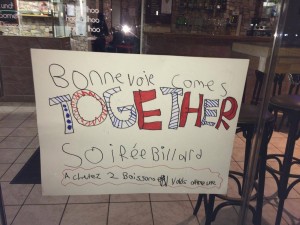 Bonnevoie comes
TOGETHER
Soirée Billard
Achetez 2 Boissons